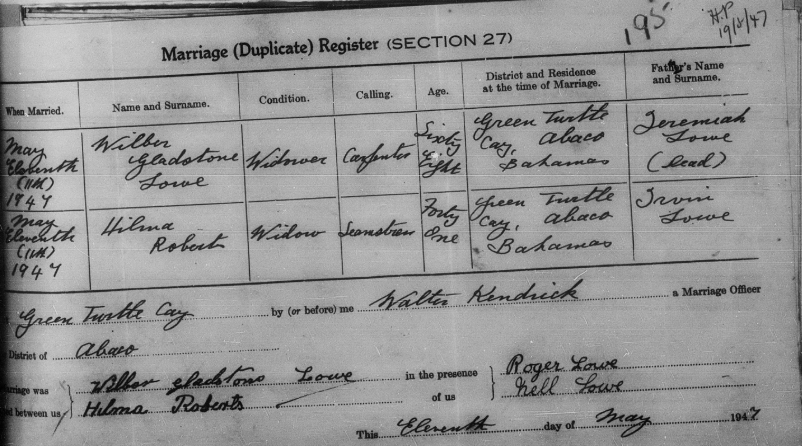 195
H.P
19/5/47
Marriage (Duplicate) Register (SECTION 27)
When Married. Name and Surname. Condition. Calling. Age. District and Residence at the time of Marriage. Father's Name and Surname.
May Eleventh (11th) 1947 Wilber Gladstone Lowe Widower Carpenter Sixty Eight Green Turtle Cay, Abaco Bahamas Jeremiah Lowe (Dead)
May Eleventh (11th) 1947 Hilma Roberts Widow Seamstress Forty One Green Turtle Cay, Abaco Bahamas Irvin Lowe
Green Turtle Cay by (or before) me Walter Kendrick a Marriage Officer
District of Abaco
arriage was Wilber Gladstone Lowe in the presence Roger Lowe
ed between us Hilma Roberts of us Nell Lowe
This Eleventh day of May 1947